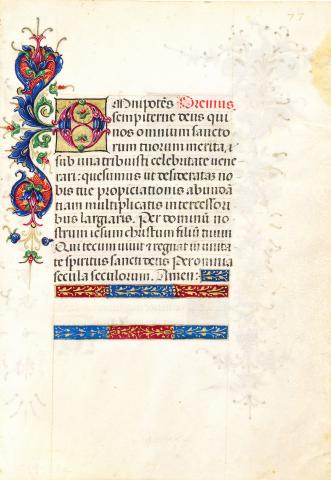 77
Omnipotēs Oremus
sempiterne deus qui
nos omnium sancto
rum tuorum merita, &
sub una tribuisti celebritate vene
rari: quesumus ut desideratas no
bis tue propiciationis abundā
tiam multiplicatis intercessori
bus largiaris. Per dominū no
strum iesum christum filiū tuum
Qui tecum vivit et regnat in unita
te spiritus sancti deus Per omnia
secula seculorum. Amen: